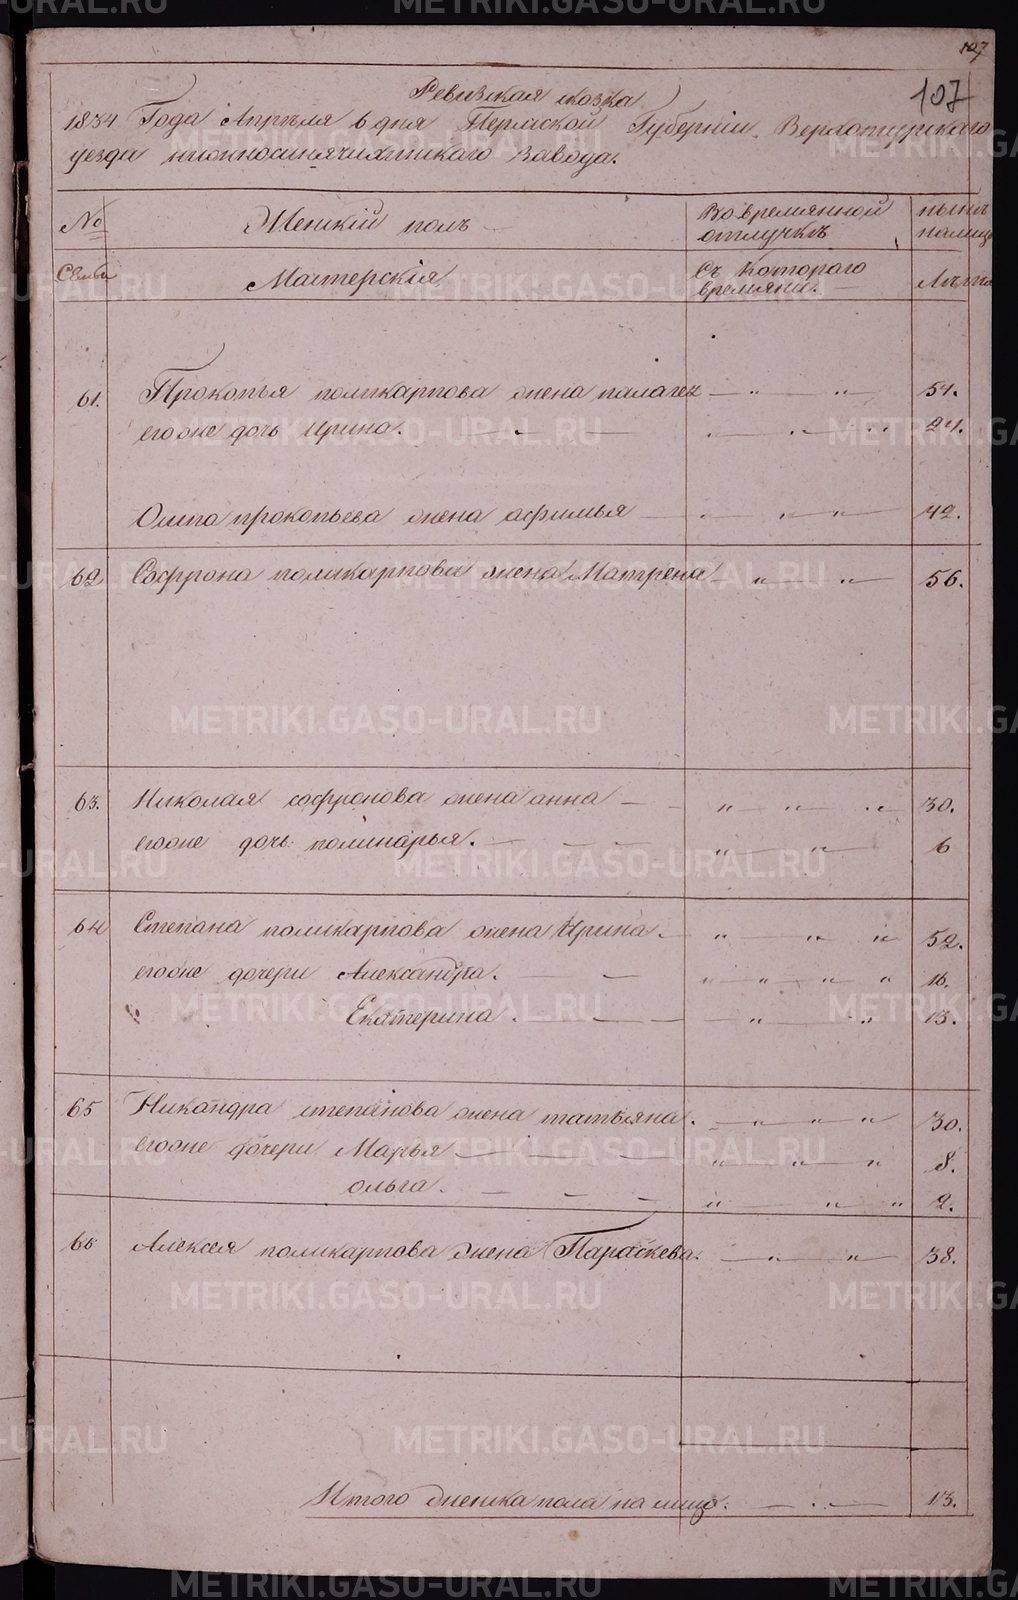 107
107
Ревизская сказка
1834 Года Апреля 6 дня Пермской Губернiи Верхотурского
уезда нижносинячихинскаго Завода.
№ Женскiй полъ Во времянной ныне
отлучкѣ налицо
Семьи Мастерскiя Съ Которого Лѣта
времяни.
61. Прокопья поликарпова жена палагея — " — " — 51.
егоже дочь Ирина. 24.
Осипа прокопьева жена афимья — " — " 42.
62 Софрона поликарпова жена Матрена — " — " — 56.
63. Николая софронова жена анна — " — " — " 30.
егоже дочь полинарья. — " — " 6
64 Степана поликарпова жена Ирина. — " — " " 52.
егоже дочери Александра. — " " " " 16.
Екатерина. — " " 13.
65 Никандра степанова жена татьяна. — " " " 30.
егоже дочери Марья — " " " 8.
ольга. — " " " 2.
66 Алексея поликарпова жена Параскева. — " — " — 38.
Итого женска пола на лицо. — 13.
METRIKI.GASO-URAL.RU